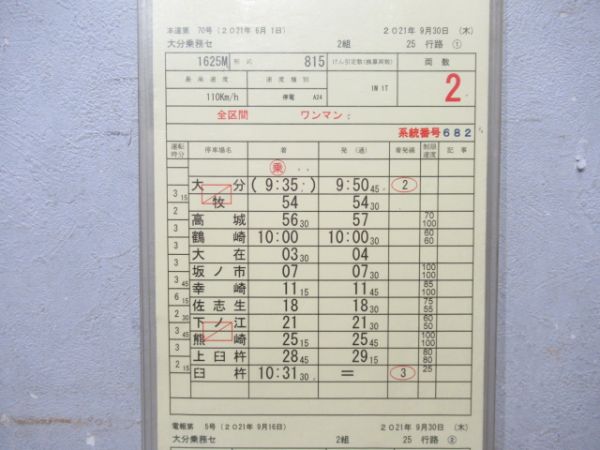 本達第 70号 (2021年 6月 1日) 2021年 9月30日 (木)
大分乗務セ 2組 25 行路 ①
1625M 形式 815 けん引定数(換算両数) 両数
最高速度 速度種別 IN 1T 2
110Km/h 停電 A24
全区間 ワンマン:
系統番号682
運転時分 停車場名 着 発(通) 着発線 制限速度 記事
乗
大分 (9:35 ) 9:50 45 2
3 15
牧 54 54 30
2
高城 56 30 57 70 100
3
鶴崎 10:00 10:00 30 60 60
3
大在 03 30 04
3
坂ノ市 07 07 30 100 100
3 45
幸崎 11 15 11 45 85 100
6 15
佐志生 18 18 30 75 55
2 30
下ノ江 21 21 30 100 60
3 45
熊崎 25 15 25 45 100 100
3
上臼杵 28 45 29 15 80 80
2 15
臼杵 10:31 30 = 3 25
電報第 5号 (2021年 9月16日) 2021年 9月30日 (木)
大分乗務セ 2組 25 行路 ②